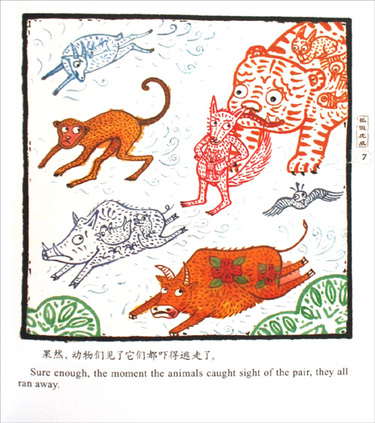 狐假虎威
7
果然，动物们见了它们都吓得逃走了。
Sure enough, the moment the animals caught sight of the pair, they all
ran away.